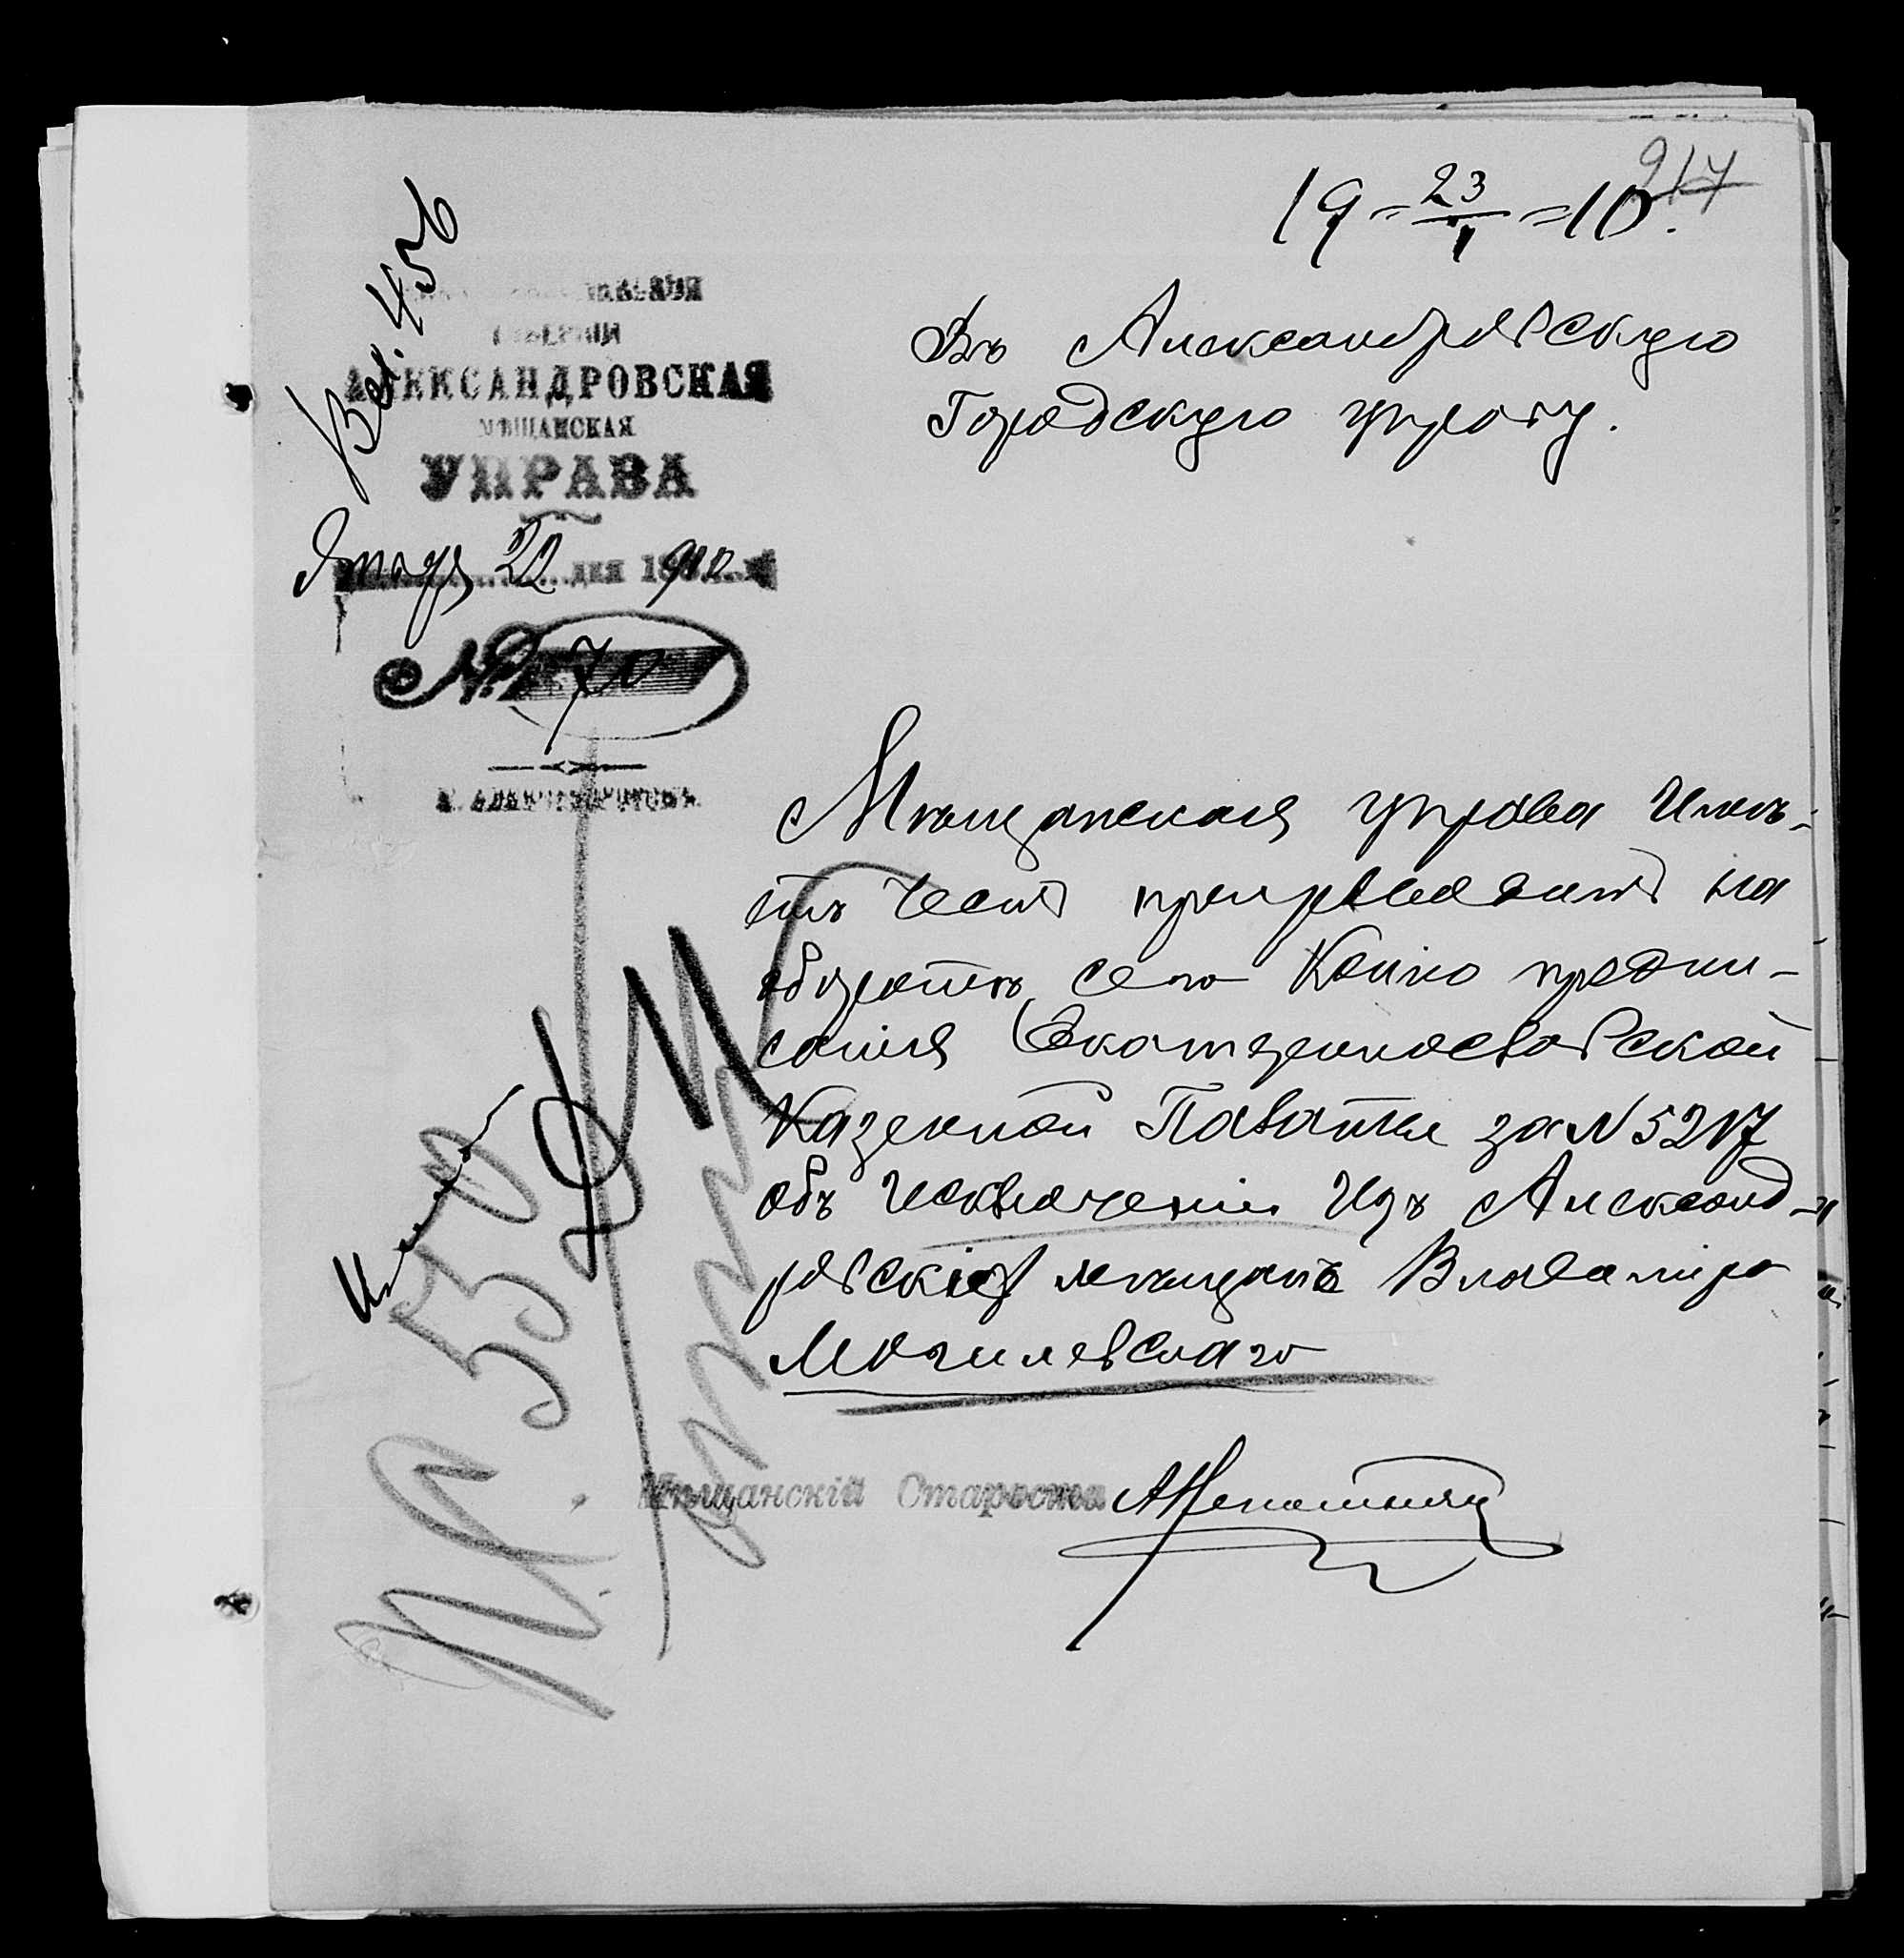 917
19 = 23/1 = 10.
Вх. 456
ГУБЕРНІИ
АЛЕКСАНДРОВСКАЯ
МѢЩАНСКАЯ
УПРАВА
Январ 22 дня 1910
№ 70
Г. АЛЕКСАНДРОВСКЪ
Въ Александровскую
Городскую управу.
Мѣщанская управа Имѣ-
етъ честь препроводить на
оборотѣ сего Копію предпи-
санія Екатеринославской
Казенной Палаты за N 5217
объ Исключеніи Изъ Александ-
ровскихъ мѣщанъ Владиміра
Могилевскаго
550
Мѣщанскій Староста